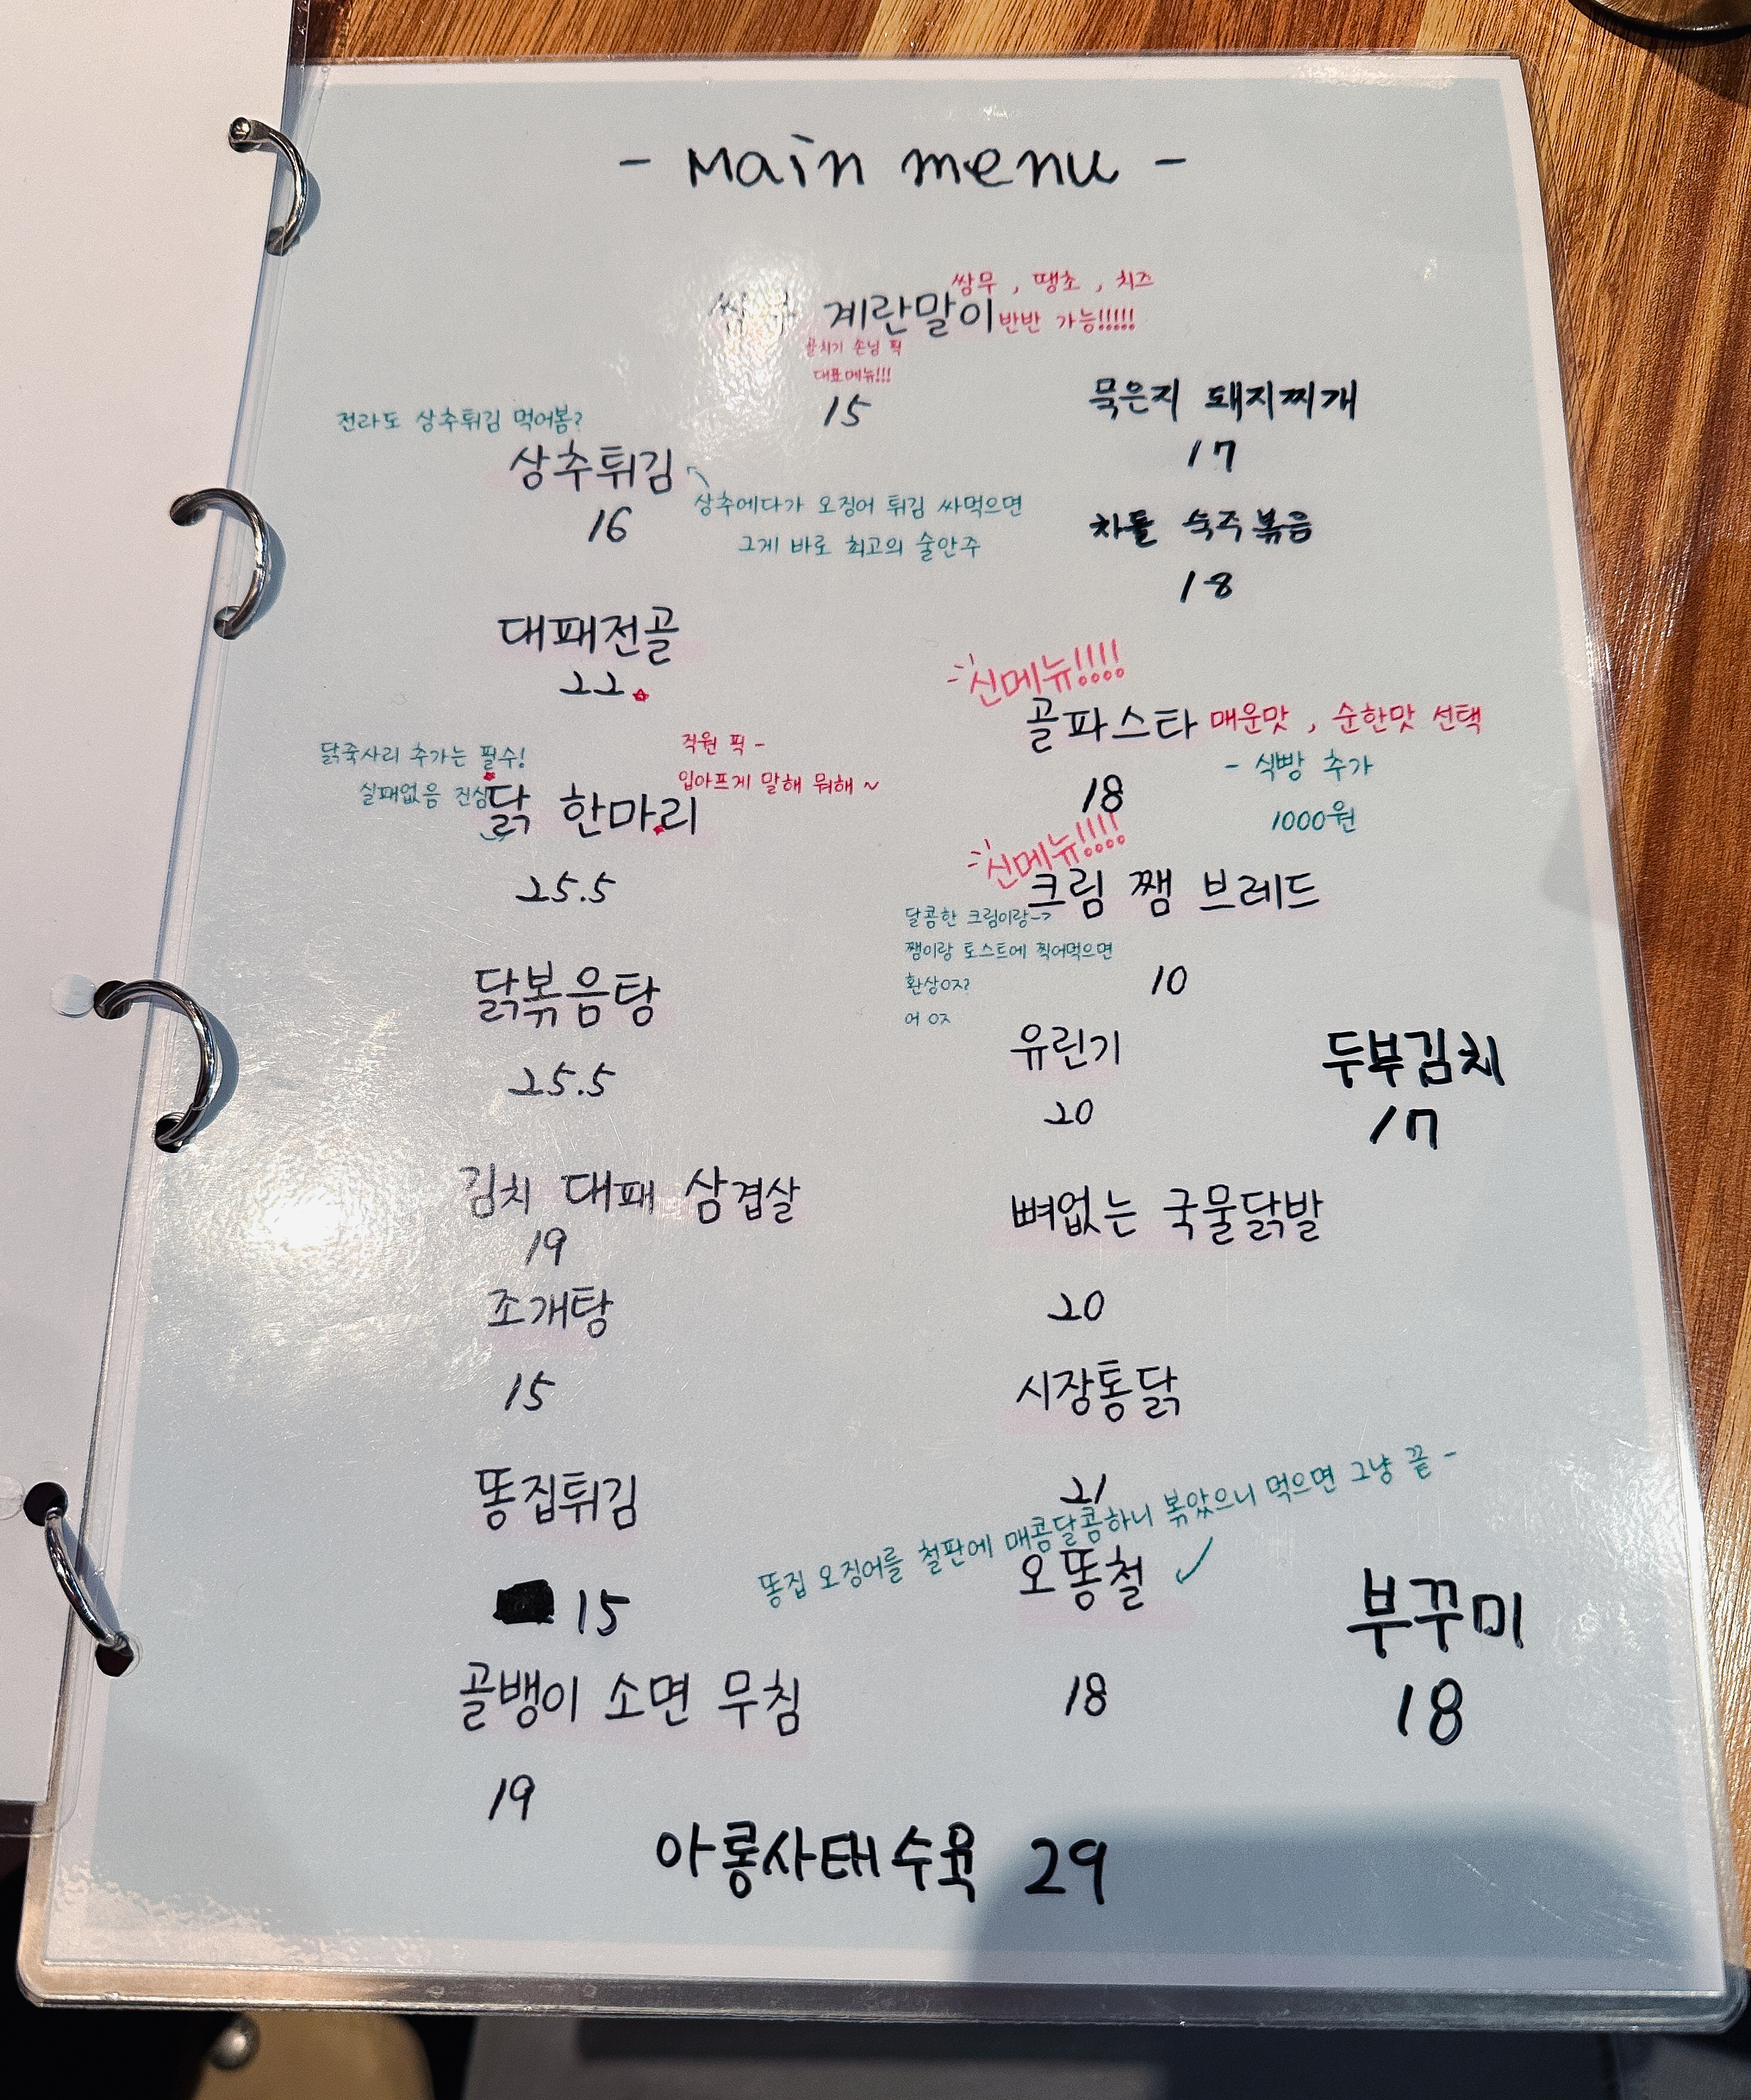 - Main menu -
쌍무 계란말이
쌍무 , 땡초 , 치즈
반반 가능!!!!!
손님 픽
대표메뉴!!!
15
묵은지 돼지찌개
17
전라도 상추튀김 먹어봄?
상추튀김
16
상추에다가 오징어 튀김 싸먹으면
그게 바로 최고의 술안주
차돌 숙주볶음
18
대패전골
22
신메뉴!!!!
골파스타 매운맛 , 순한맛 선택
18
- 식빵 추가
1000원
닭죽사리 추가는 필수!
실패없음 진심
직원 픽 -
입아프게 말해 뭐해 ~
닭 한마리
25.5
신메뉴!!!!
크림 쨈 브레드
달콤한 크림이랑->
쨈이랑 토스트에 찍어먹으면
환상이지?
어 이지
10
닭볶음탕
25.5
유린기
20
두부김치
17
김치 대패 삼겹살
19
뼈없는 국물닭발
20
조개탕
15
시장통닭
21
똥집튀김
15
똥집 오징어를 철판에 매콤달콤하니 볶았으니 먹으면 그냥 끝 -
오똥철
18
부꾸미
18
골뱅이 소면 무침
19
아롱사태수육 29